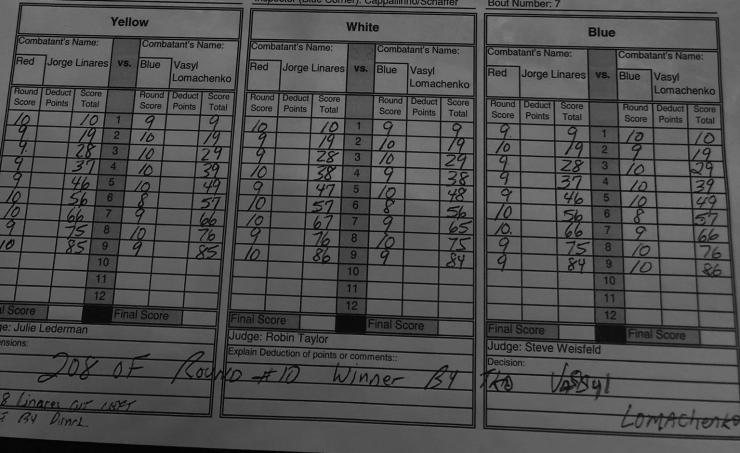 Inspector (Blue Corner): Cappallino/Schaffer
Bout Number: 7
Yellow
Combatant's Name: Combatant's Name:
Red Jorge Linares vs. Blue Vasyl
Lomachenko
Round Score Deduct Points Score Total Round Score Deduct Points Score Total
10 10 1 9 9
9 19 2 10 19
9 28 3 10 29
9 37 4 10 39
9 46 5 10 49
10 56 6 8 57
10 66 7 9 66
9 75 8 10 76
10 85 9 9 85
10
11
12
Final Score Final Score
Julie Lederman
White
Combatant's Name: Combatant's Name:
Red Jorge Linares vs. Blue Vasyl
Lomachenko
Round Score Deduct Points Score Total Round Score Deduct Points Score Total
10 10 1 9 9
9 19 2 10 19
9 28 3 10 29
10 38 4 9 38
9 47 5 10 48
10 57 6 8 56
10 67 7 9 65
9 76 8 10 75
10 86 9 9 84
10
11
12
Final Score Final Score
Judge: Robin Taylor
Explain Deduction of points or comments::
Blue
Combatant's Name: Combatant's Name:
Red Jorge Linares vs. Blue Vasyl
Lomachenko
Round Score Deduct Points Score Total Round Score Deduct Points Score Total
9 9 1 10 10
10 19 2 9 19
9 28 3 10 29
9 37 4 10 39
9 46 5 10 49
10 56 6 8 57
10 66 7 9 66
9 75 8 10 76
9 84 9 10 86
10
11
12
Final Score Final Score
Judge: Steve Weisfeld
Decision:
208 OF Round #10 Winner By TKO Vassyl
Lomachenko
8 Linares CUT LEFT